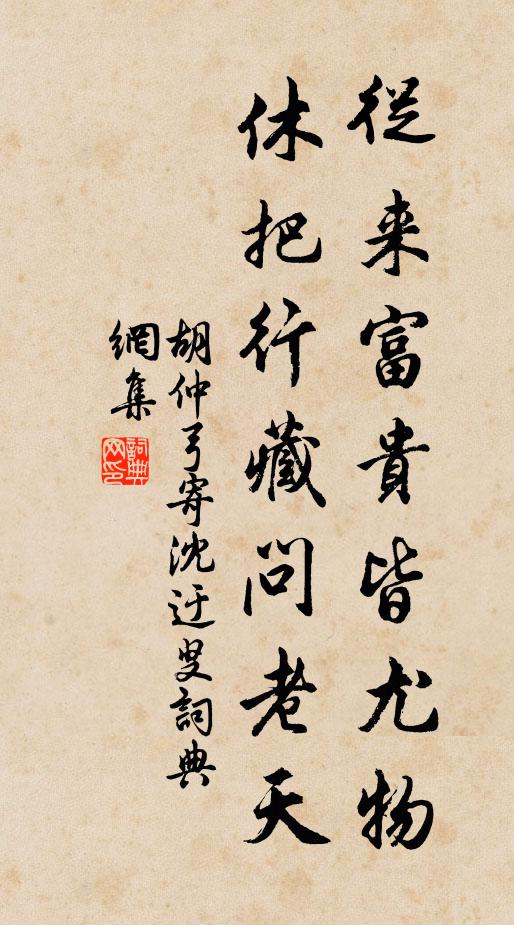 從来富貴皆尤物
休把行藏問老天
胡仲弓寄沈迂叟詞典
網集
詞典
网印